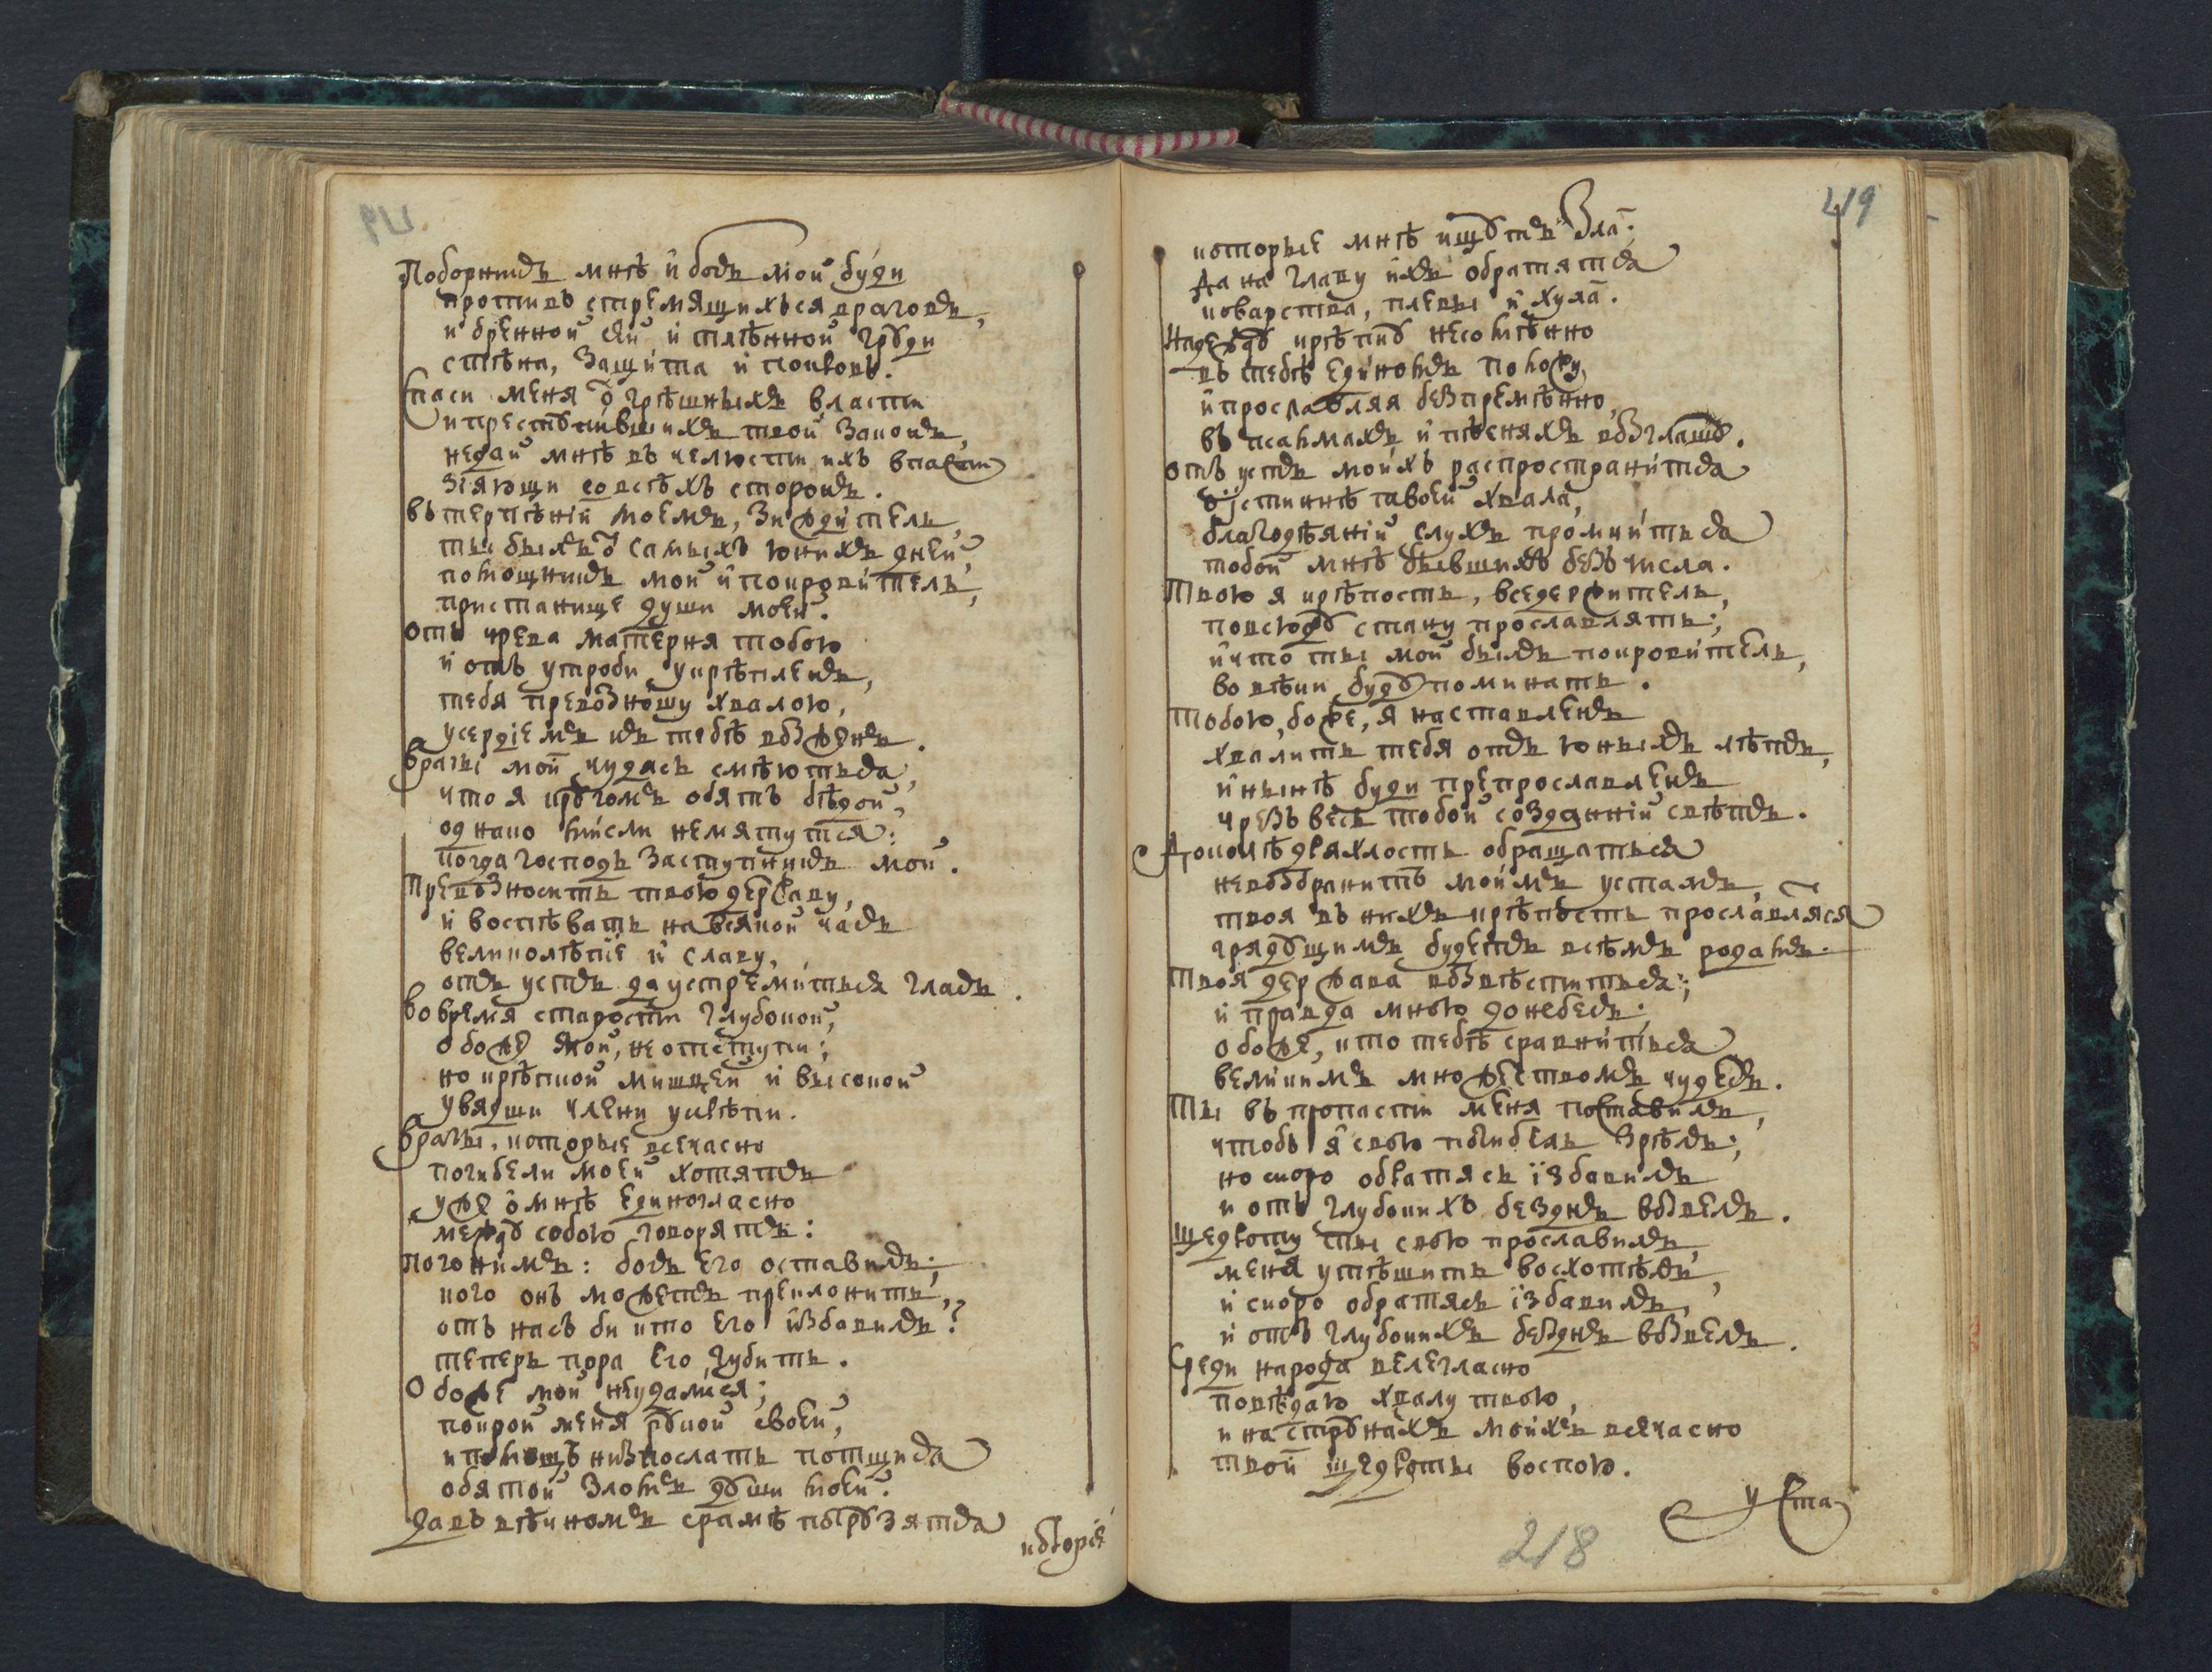 Поборникъ мнѣ и богъ мой буди
противъ стремящихъся враговъ,
и бренной сей и тлѣнной груди
стѣна, защита и покровъ.
Спаси меня ѿ грѣшныхъ власти
и преступившихъ твой законъ,
недай мнѣ въ челюсти ихъ впасти
зіяющи со всѣхъ сторонъ.
въ терпѣніи моемъ, зиждитель,
ты былъ ѿ самыхъ юнихъ дней,
помощникъ мой и покровитель,
пристанище души моей.
отъ чрева матерня тобою
и отъ утроби укрѣпленъ,
тебя превозношу хвалою,
усердіемъ къ тебѣ возженъ.
враги мои чудясь смѣютъся,
что я кругомъ обятъ бѣдой,
однако мысли немятутся:
когда господь заступникъ мой.
Превозносить твою державу,
и воспѣвать на всякой часъ
великолѣпіе и славу,
отъ устъ да устремитъся гласъ.
во время старости глубокой,
о боже мой, не отступи;
но крѣпкой мишцей и високой
увядши члени укрѣпи.
враги, которые всечасно
погибели моей хотятъ
уже о мнѣ единогласно
между собою говорятъ:
погонимъ: богъ его оставилъ;
кого онъ можетъ преклонить,
отъ насъ би кто его избавилъ?
теперь пора его губить.
О боже мой неудалися;
покрой меня рукой своей,
и помощь низпослать потщися
обятой зломъ души моей.
да въ вѣчномъ срамѣ погрузятся
которіе
219
которые мнѣ ищутъ зла:
Да на главу ихъ обратятся
коварства, плевы и хула.
Надежду крѣпку несомнѣнно
въ тебѣ единомъ положу,
и прославляя безпремѣнно,
въ псалмахъ и пѣсняхъ возглашу.
отъ устъ моихъ распространится
о истиннѣ твоей хвала,
благодѣяній слухъ промчиться
тобой мнѣ бывшихъ безъ числа.
Твою я крѣпость, вседержитель,
повсюду стану прославлять;
и что ты мой былъ покровитель,
во вѣки буду поминать.
Тобою, боже, я наставленъ
хвалить тебя отъ юныхъ лѣтъ,
и нынѣ буди препрославленъ
чрезъ весь тобой созданній свѣтъ.
Доколѣ дряхлость обращаться
невозбранитъ моимъ устамъ,
твоя въ нихъ крѣпость прославляся
грядущимъ будетъ всѣмъ родамъ.
Твоя держава возвѣститься;
и правда мною до небесъ;
о боже, кто тебѣ сравниться
великимъ множествомъ чудесъ.
Ты въ пропасти меня поставилъ,
чтобъ я свою погибель зрѣлъ;
но скоро обратясь ізбавилъ
и отъ глубокихъ безднъ возвелъ.
Щедроту ты свою прославилъ,
меня утѣшить восхотѣлъ,
и скоро обратясь ізбавилъ,
и отъ глубокихъ безднъ возвелъ.
Среди народа велегласно
повѣдаю хвалу твою,
и на струнахъ моихъ всечасно
твои щедроты воспою.
уста
218